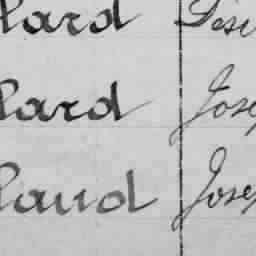 lard Dési
lard Jose
laud Jose